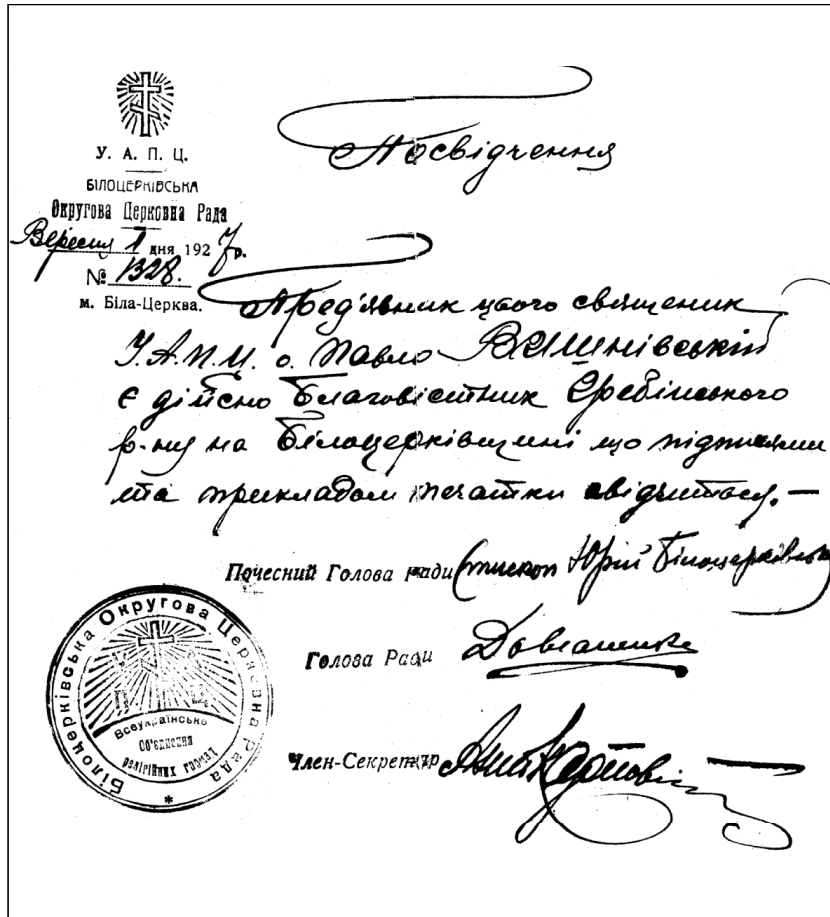 У. А. П. Ц.
БІЛОЦЕРКІВСЬКА
Округова Церковна Рада
Вересня 1 дня 1927 р.
№ 1328.
м. Біла-Церква.
Посвідчення
Пред'явник цього священик
У.А.П.Ц. о. Павло
є дійсно благовістник Гребінського
р-ну на Білоцерківщині що підписами
та прикладом печатки свідчиться. —
Почесний Голова ради Єпископ Юрій Білоцерківськ
Голова Ради
Член-Секретар
Білоцерківська Округова Церковна Рада
У А
П Ц
Всеукраїнське
Об'єднання
релігійних громад